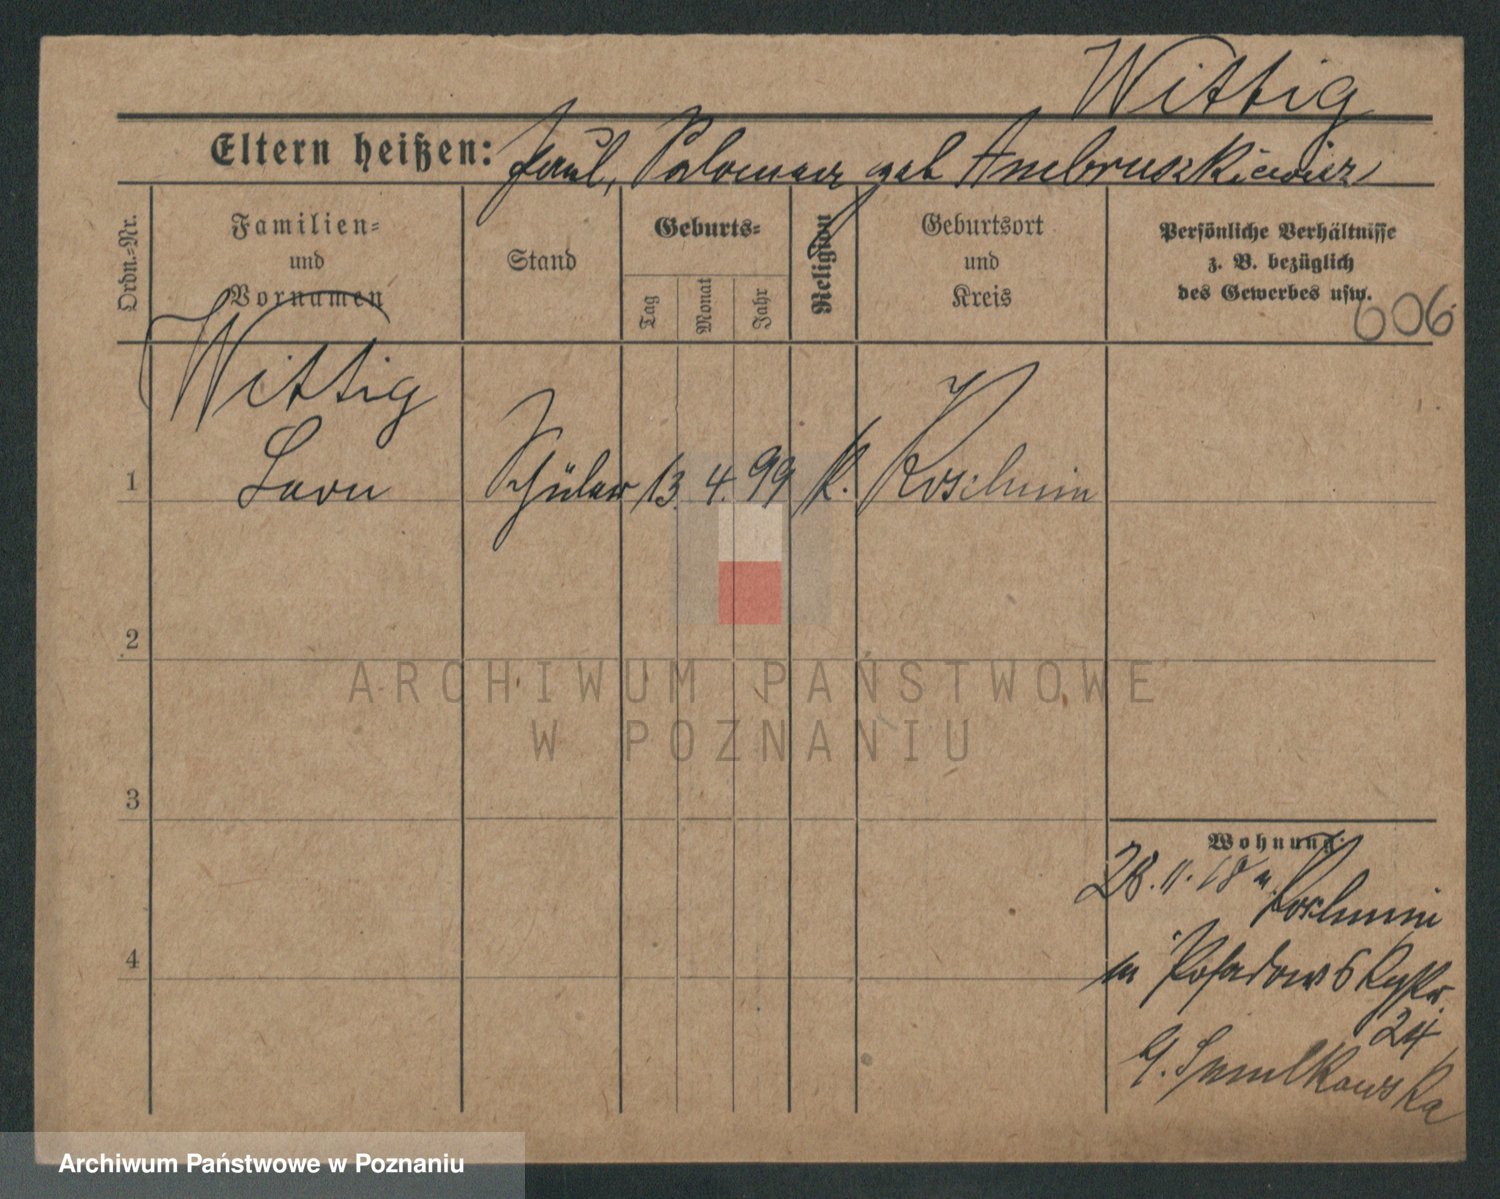 Wittig
Eltern heißen: Paul, Salomea geb Ambruszkiewicz
Ordn.-Nr.
Familien-
und
Vornamen
Stand
Geburts-
Tag
Monat
Jahr
Religion
Geburtsort
und
Kreis
Persönliche Verhältnisse
z. B. bezüglich
des Gewerbes usw.
606
Wittig
1 Leon Schüler 13. 4. 99 k. Koschmin
2
ARCHIWUM PAŃSTWOWE
W POZNANIU
3
Wohnung:
28.11.18 Koschmin
4
24
Archiwum Państwowe w Poznaniu